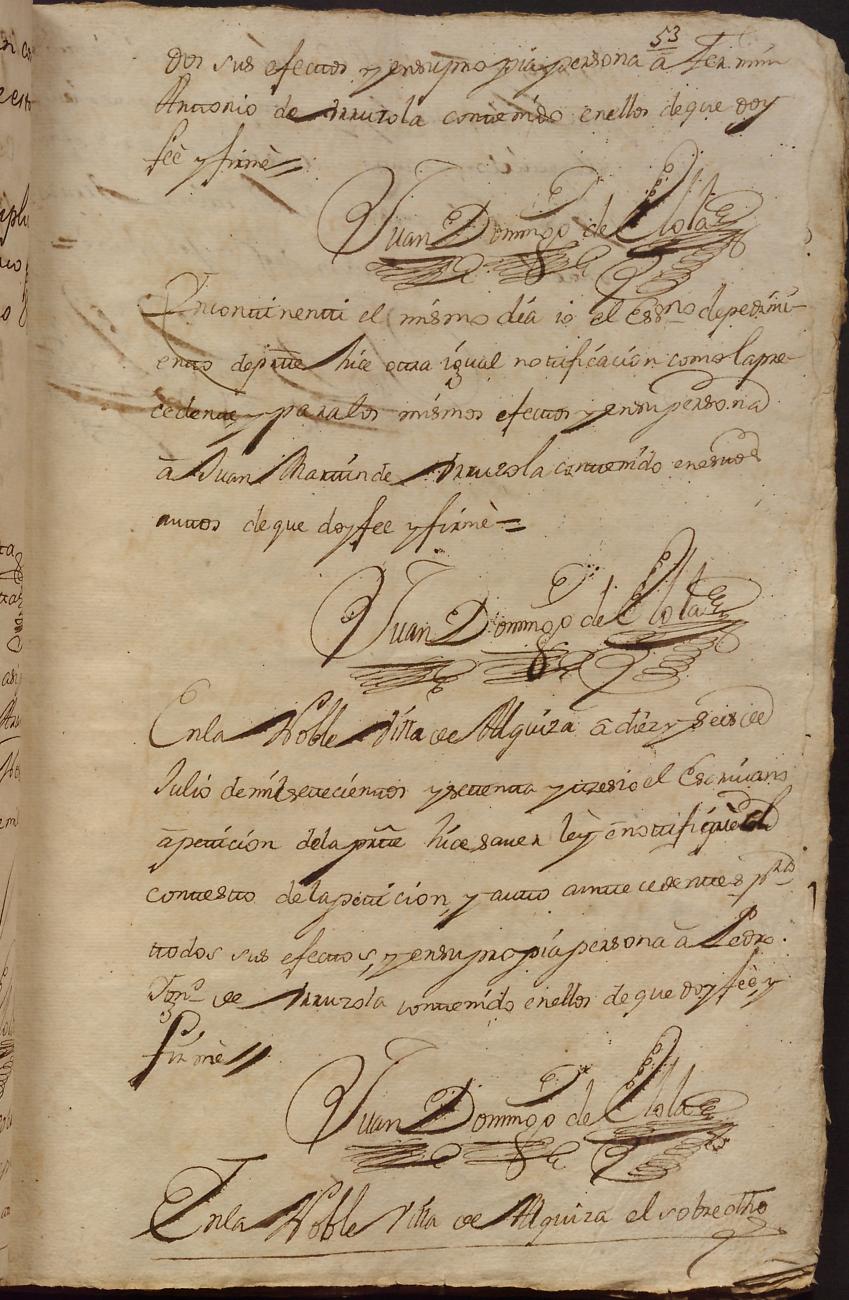 53
dos sus efectos y en su propia persona â Fermin
Anttonio de Irruzola conttenido en ellos de que doy
feè y firmè
Juan Domingo de Olola
Yncontinentti el mismo día io el Essno de pedimi-
entto de partte hice ottra igual nottificacion como la pre-
cedente y para los mismos efecttos y en su persona
â Juan Marttin de Irruzola conttenido en esttos
auttos de que doy fee y firmè
Juan Domingo de Olola
En la Noble Villa de Alquiza â diez y seis de
Julio de mil settecienttos y settentta y ttres io el Escrivano
â petticion de la partte hice saver leý ê nottifiquè el
conttestto de la petticion, y autto anttecedenttes pra
ttodos sus efecttos, y en su propia persona â Pedro
Ignº de Irruzola conttenido en ellos de que doy feè, y
firmè
Juan Domingo de Olola
En la Noble Villa de Alquiza el sobre dho